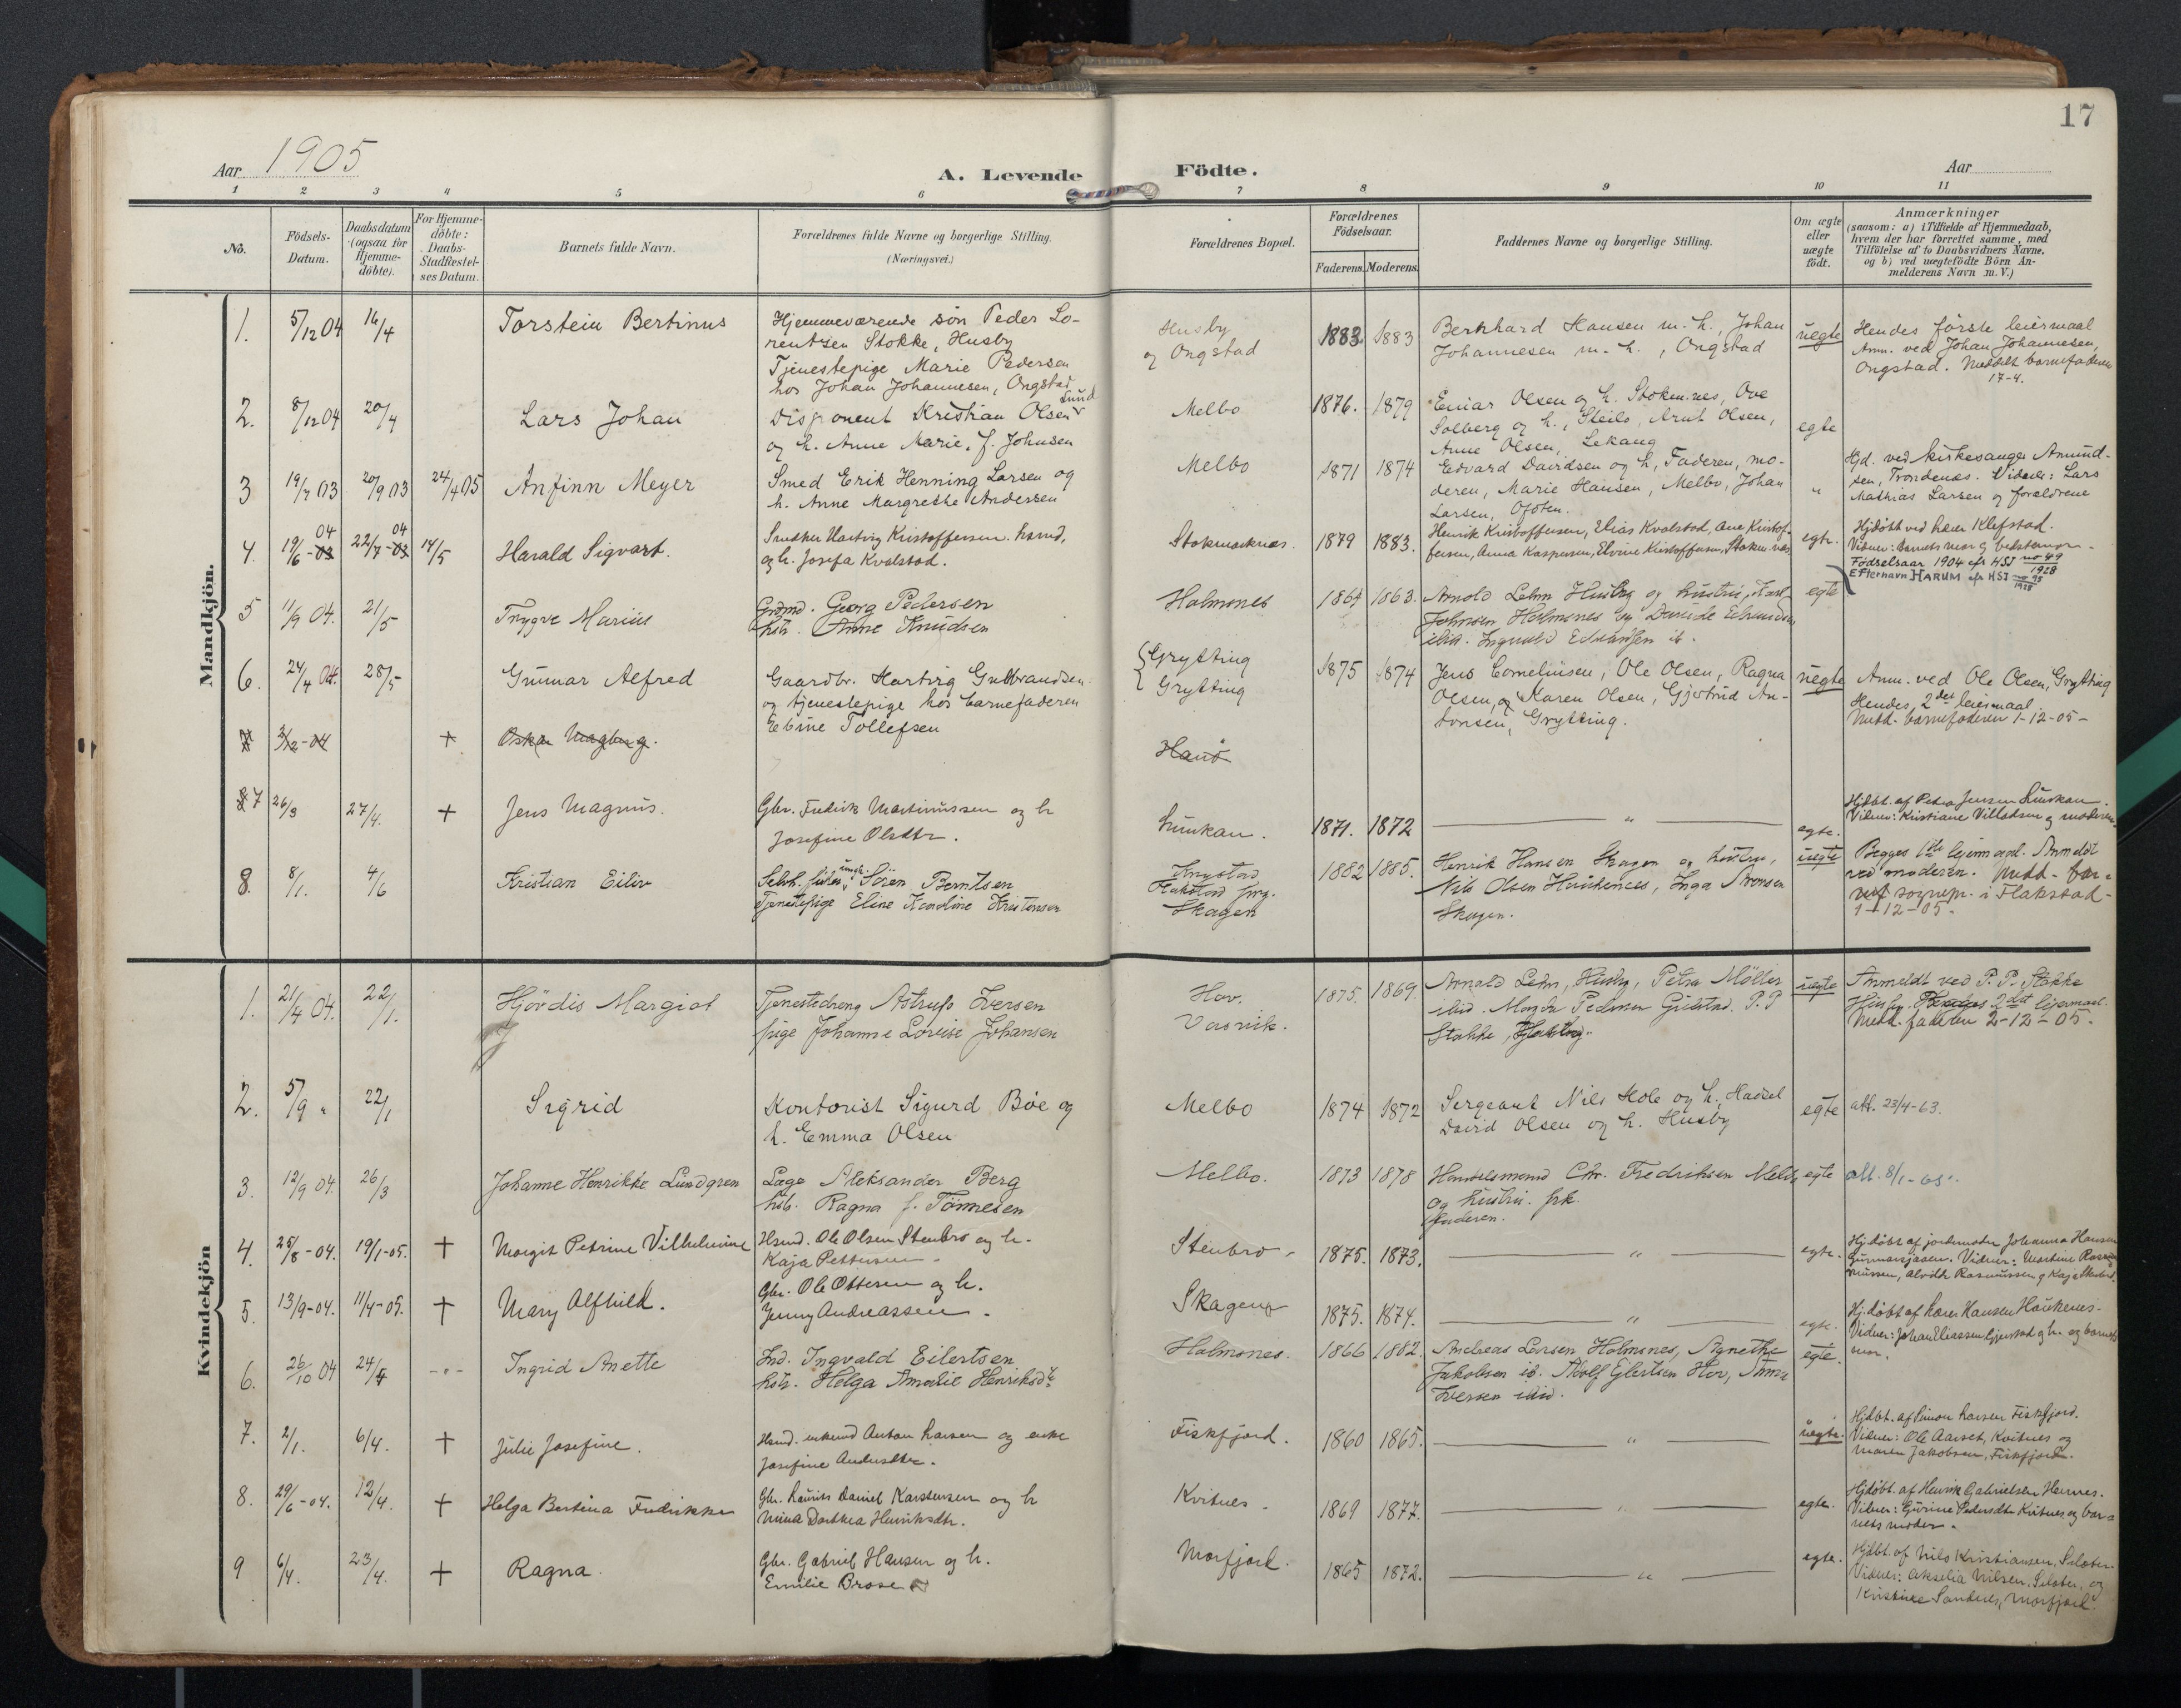 17
Aar 1905
A. Levende Födte.
Aar
1 2 3 4 5 6 7 8 9 10 11
No.
Födsels-Datum.
Daabsdatum (ogsaa for Hjemme-döbte).
For Hjemme-döbte: Daabs-Stadfæstel-ses Datum.
Barnets fulde Navn.
Forældrenes fulde Navne og borgerlige Stilling.
(Næringsvei.)
Forældrenes Bopæl.
Forældrenes Födselsaar.
Faderens. Moderens.
Faddernes Navne og borgerlige Stilling.
Om ægte eller uægte födt.
Anmærkninger
(saasom: a) i Tilfælde af Hjemmedaab,
hvem der har forrettet samme, med
Tilföielse af to Daabsvidners Navne.
og b) ved uægtefödte Börn An-
melderens Navn m. V.)
Mandkjön.
1. 5/12 04 16/4 Torstein Bertinus
Hjemmeværende søn Peder Lo-
rentsen Stokke, Husby
Tjenestepige Marie Pedersen
hos Johan Johannesen, Ongstad
Husby
og Ongstad
1883. 1883
Bernhard Hansen m. h., Johan
Johannesen m. h., Ongstad
uegte
Hendes første leiermaal
Anm. ved Johan Johannesen,
Ongstad. Meddelt barnefaderen
17-4.
2. 8/12 04 20/4 Lars Johan
Disponent Kristian Olsen Lund
og h. Anne Marie, f. Johnsen
Melbo
1876. 1879
Einar Olsen og h. Stokm.nes, Ove
Solberg og h., Steilo, Arnt Olsen,
Anne Olsen, Lekang
egte
3 19/7 03 20/9 03 24/4 05 Anfinn Meyer
Smed Erik Henning Larsen og
h. Anne Margrethe Andersen
Melbo
1871 1874
Edvard Davidsen og h, Faderen, mo-
deren, Marie Hansen, Melbo, Johan
Larsen, Ofoten.
"
Hjd. ved kirkesanger Amund-
sen, Trondenæs. Vidner: Lars
Mathias Larsen og forældrene
4. 19/6-03 04 22/7-03 04 14/5 Harald Sigvart.
Snedker Hartvig Kristoffersen hsmd,
og h. Josefa Kvalstad.
Stokmarknes.
1879 1883.
Henrik Kristoffersen, Elias Kvalstad, Ane Kristof-
fersen, Anna Kaspersen, Elvine Kristoffersen, Stokm.nes
egte.
Hjdøbt ved lærer Klefstad.
Vidner: Barnets mor og bedstemor.
Födselsaar 1904 efr HSJ no 49 1928
Efternavn HARUM efr HSJ no 95 1928
5 11/9 04. 21/5 Trygve Marius
Grdmd. Georg Pedersen
hstr. Anne Knudsen
Holmsnes
1864 1863.
Arnold Lehn Husby og hustru, Karl
Johnsen Holmsnes og
ibid. Ingvald ib.
egte
6. 24/4 04. 28/5 Gunnar Alfred
Gaardbr. Hartvig Gulbrandsen
og tjenestepige hos barnefaderen
Ebine Tollefsen
Grytting
Grytting
1875 1874
Jens Corneliusen, Ole Olsen, Ragna
Olsen, og Karen Olsen, Gjertrud An-
tonsen, Grytting.
uegte
Anm. ved Ole Olsen, Grytting
Hendes 2det leiermaal.
Medd. barnefaderen 1-12-05-
7 3/12-04 + Oskar Magberg.
Hanø
8 7 26/3 27/4. + Jens Magnus.
Gbr. Fredrik Martinussen og h
Josefine Olsdtr.
Lunkan.
1871. 1872
"
egte.
Hjdbt. af Petra Jensen Lunkan.
Vidner: Kristiane Villadsen og moderen.
8. 8/1. 4/6 Kristian Eiliv
Selvh. fisker, ungk. Søren Berntsen
Tjenestepige Eline Karoline Kristensen
Flakstad prg.
Skagen
1882 1885.
Henrik Hansen Skagen og hustru,
Nils Olsen Haukenes, Inga
Skagen.
uegte
Begges 1ste lejermaal. Anmeldt
ved moderen. Medd. far-
sognepr. i Flakstad-
1-12-05-
Kvindekjön
1. 21/4 04. 22/1. Hjørdis Margiot
Tjenestedreng Astrup Iversen
pige Johanne Lovise Johansen
Hov.
Vasvik.
1875. 1869.
Arnold Lehn, Husby, Petra Møller
ibid. Magda Pedersen Guldstad. P. P
Stokke,
uegte
Anmeldt ved P. P. Stokke
Husby. 2det lejermaal.
Medd. faderen 2-12-05.
2. 5/9 " 22/1 Sigrid
Kontorist Sigurd Bøe og
h. Emma Olsen
Melbo
1874 1872
Sergeant Nils Hole og h., Hadsel
David Olsen og h. Husby
egte
att. 23/4-63.
3. 12/9 04. 26/3 Johanne Henrikke Lundgren
Læge Aleksander Berg
hstr. Ragna f. Tønnesen
Melbo.
1873 1878
Handelsmand Chr. Fredriksen Melbo
og hustru. frk.
faderen.
egte
att. 8/1-65.
4. 25/8-04. 19/1-05. + Margit Petrine Vilhelmine
Hsmd. Ole Olsen Stenbro og h.
Kaja Pettersen
Stenbro.
1875. 1873.
"
egte.
Hj.døbt af jordmoder Johanna Hansen
Gunnarsjaaen. Vidner: Martine Ras-
mussen, Alvdh Rasmussen og Kaja Stenbro.
5. 13/9-04. 11/4-05. + Mary Alfhild.
Gbr. Ole Ottesen og h.
Jenny Andreassen.
Skagen
1875. 1874.
"
egte.
Hj.døbt af lærer Hansen Haukenes.
Vidner: Johan Eliassen Gjerstad og h. og barnets
mor.
6. 26/10 04 24/4 - Ingrid Anette
Ind. Ingvald Eilertsen
hstr. Helga Amalie Henriksdtr.
Holmsnes.
1866 1882.
Andreas Larsen Holmsnes, Agnethe
Jakobsen ib. Adolf Eilertsen Hov, Anna
Iversen ibid.
egte.
7. 2/1. 6/4. + Julie Josefine.
Hsmd. enkemd Anton Larsen og enke
Josefine Andersdtr.
Fiskfjord.
1860 1865.
"
uegte.
Hjdbt. af Simon Larsen Fiskfjord.
Vidner: Ole Aarset, Kvitnes og
Maren Jakobsen, Fiskfjord.
8. 29/6-04. 12/4. + Helga Bertina Fredrikke
Gbr. Laurits Daniel Karstensen og h
Mina Dorthea Henriksdtr.
Kvitnes.
1869 1877.
"
egte.
Hjdøbt. af Henrik Gabrielsen Hennes.
Vidner: Gurine Pedersdtr Kvitnes og bar-
nets moder.
9 6/4. 23/4. + Ragna.
Gbr. Gabriel Hansen og h.
Emilie Brose
Morfjord.
1865 1872.
"
egte.
Hjdbt. af Nils Kristiansen, Sloter.
Vidner: Akselia Nilsen, Sloter, og
Kristine Sandnes, Morfjord.